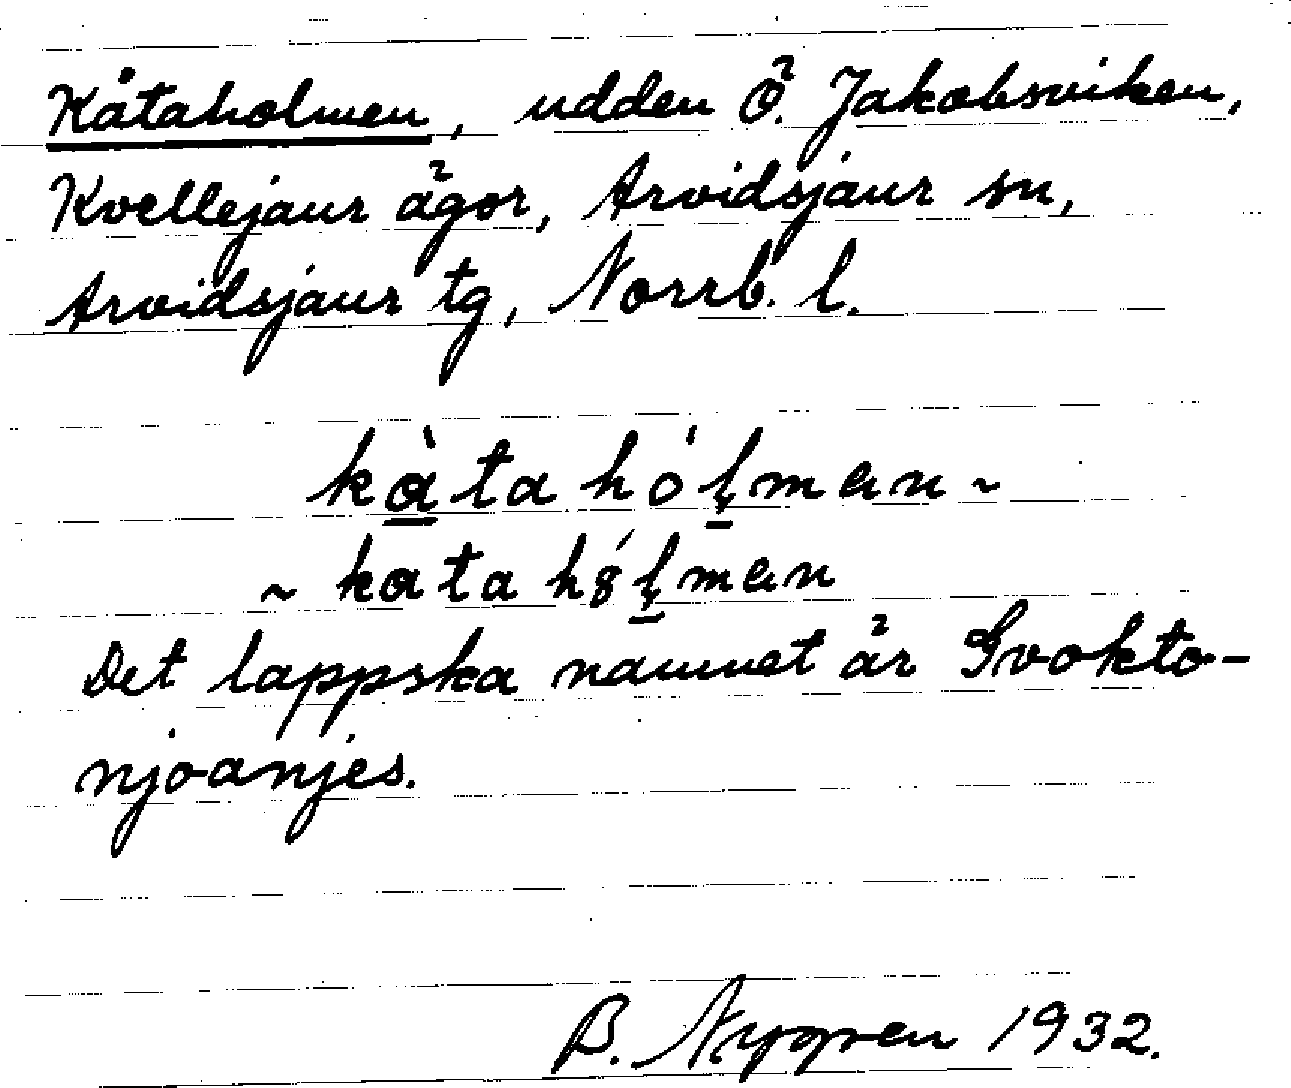 Kåtaholmen, udden Ö. Jakobsviken,
Kvellejaur ägor, Arvidsjaur sn,
Arvidsjaur tg, Norrb. l.
kàta hólman ~
~ kata hólman
Det lappska namnet är Svokto-
njoanjes.
B. Nygren 1932.